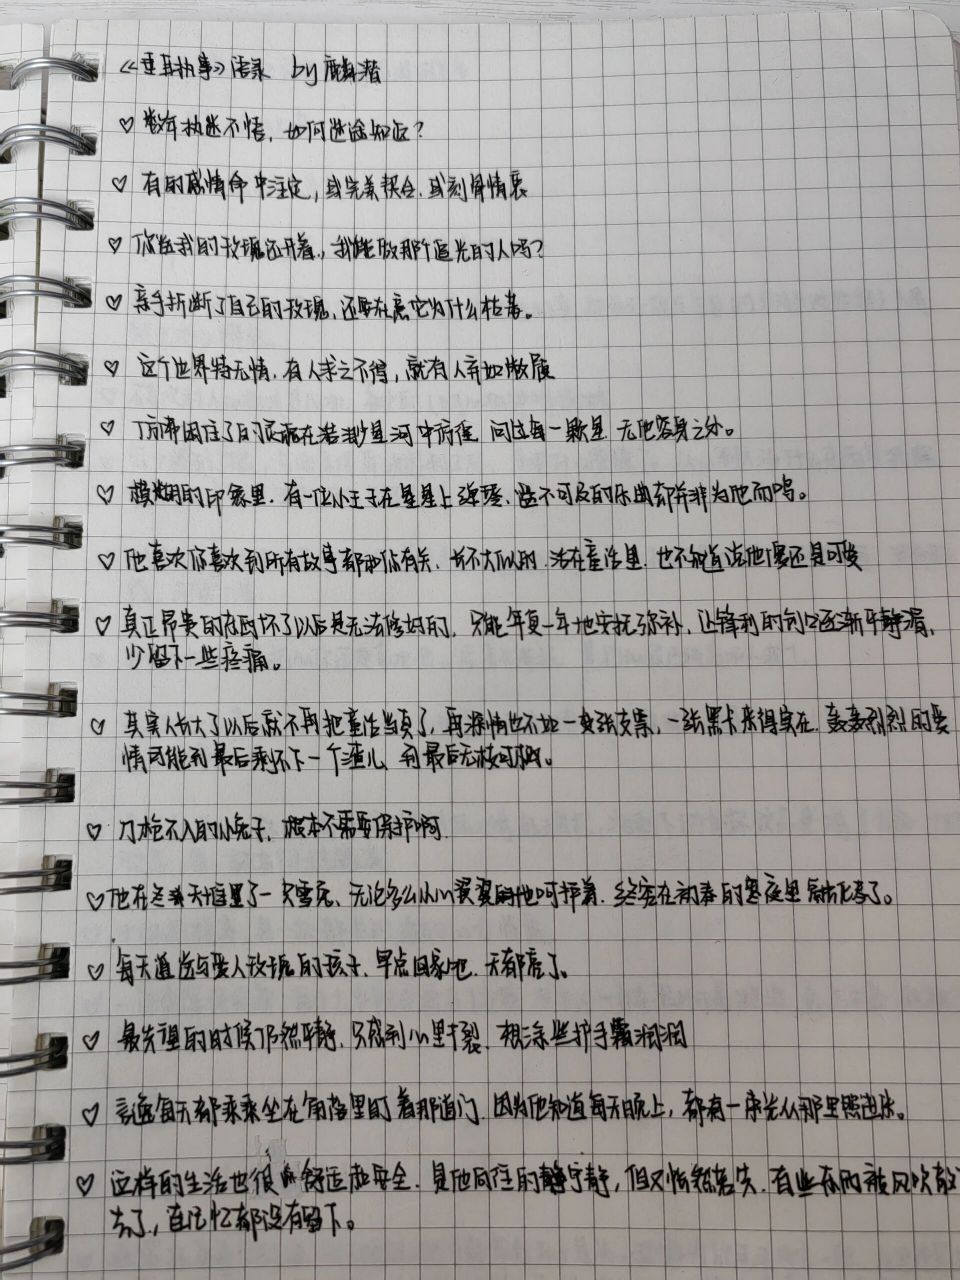 《垂耳执事》语录 by 麟潜
♡ 数年执迷不悟，如何迷途知返？
♡ 有的感情命中注定，或完美契合，或刻骨情衷
♡ 你送我的玫瑰还开着，我能做那个追光的人吗？
♡ 亲手折断了自己的玫瑰，还要在意它为什么枯萎。
♡ 这个世界特无情，有人求之不得，就有人弃如敝屣
♡ 困住了的灵魂在浩渺星河中彷徨，问过每一颗星，无他容身之处。
♡ 模糊的印象里，有一位小王子在星星上弹琴，遥不可及的乐曲却并非为他而鸣。
♡ 他喜欢你喜欢到所有故事都和你有关，长不大似的，活在童话里，也不知道该说他傻还是可爱
♡ 真正昂贵的东西坏了以后是无法修好的，只能年复一年地安抚弥补，让锋利的创口逐渐平静，
少留下一些疼痛。
♡ 其实人长大了以后就不再把童话当真了，再深情也不如一张支票，一张黑卡来得实在，轰轰烈烈的爱
情可能到最后剩不下一个渣儿，到最后无枝可栖。
♡ 刀枪不入的小兔子，根本不需要保护啊
♡ 他在冬天里堆了一只雪兔，无论多么小心翼翼的地呵护着，终究在初春的寒夜里融化了。
♡ 每天道送与爱人玫瑰的孩子，早点回家吧，天都亮了。
♡ 最失望的时候仍然平静，只感到心里干裂，想涂些护手霜润润
♡ 言逸每天都乖乖坐在角落里盯着那道门，因为他知道每天晚上，都有一束光从那里照进来。
♡ 这样的生活也很舒适和安全，是他向往的宁静，但又怅然若失，有些东西被风吹散了
去了，连记忆都没有留下。